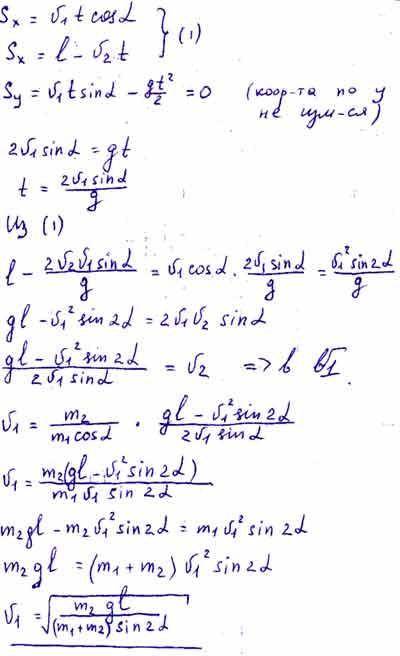 Sx = v₁ t cosα } (1)
Sx = l - v₂ t
Sy = v₁ t sinα - gt²/2 = 0 (коор-та по y
не изм-ся)
2v₁ sinα = gt
t = 2v₁ sinα/g
Из (1)
l - 2v₂v₁ sinα/g = v₁ cosα · 2v₁ sinα/g = v₁² sin2α/g
gl - v₁² sin2α = 2v₁v₂ sinα
gl - v₁² sin2α/2v₁ sinα = v₂ => в v₁.
v₁ = m₂/m₁cosα · gl - v₁² sin2α/2v₁ sinα
v₁ = m₂(gl - v₁² sin2α)/m₁ v₁ sin2α
m₂gl - m₂v₁² sin2α = m₁v₁² sin2α
m₂gl = (m₁+m₂) v₁² sin2α
v₁ = √m₂ gl/(m₁+m₂) sin2α